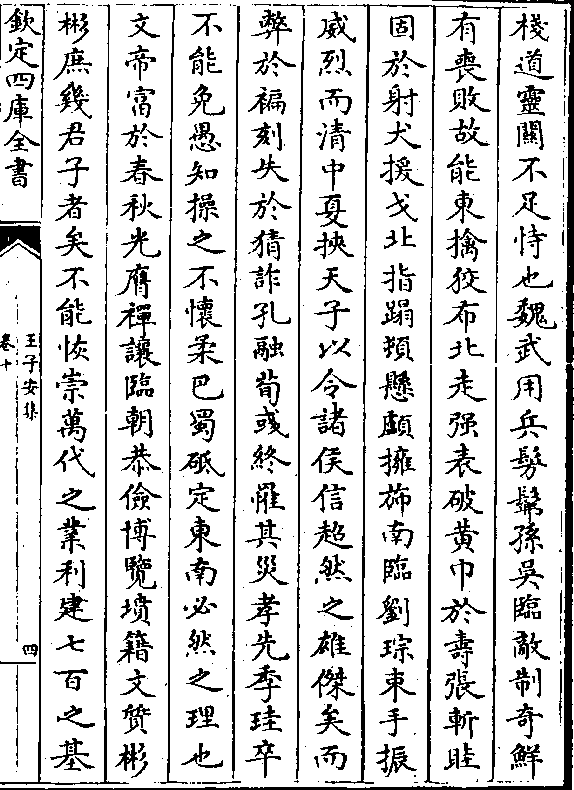 棧道靈關不足恃也魏武用兵髣髴孫吳臨敵制奇鮮
有喪敗故能東擒狡布北走强袁破黄巾於壽張斬眭
固於射犬援戈北指蹋頓懸顱擁斾南臨劉琮束手振
威烈而清中夏挾天子以令諸侯信超然之雄傑矣而
弊於褊刻失於猜詐孔融荀彧終罹其災孝先季珪卒
不能免愚知操之不懷柔巴蜀砥定東南必然之理也
文帝富於春秋光膺禪讓臨朝恭儉博覽墳籍文質彬
彬庶幾君子者矣不能恢崇萬代之業利建七百之基
欽定四庫全書
王子安集
卷十
四